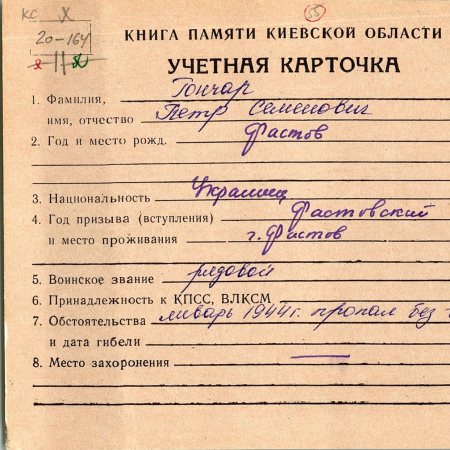 КС X
55
20-164
КНИГА ПАМЯТИ КИЕВСКОЙ ОБЛАСТИ
УЧЕТНАЯ КАРТОЧКА
1. Фамилия, Гончар
имя, отчество Петр Семенович
2. Год и место рожд. Фастов
3. Национальность Украинец
4. Год призыва (вступления) Фастовский
и место проживания г. Фастов
5. Воинское звание рядовой
6. Принадлежность к КПСС, ВЛКСМ
7. Обстоятельства январь 1944 г. пропал без
и дата гибели
8. Место захоронения —